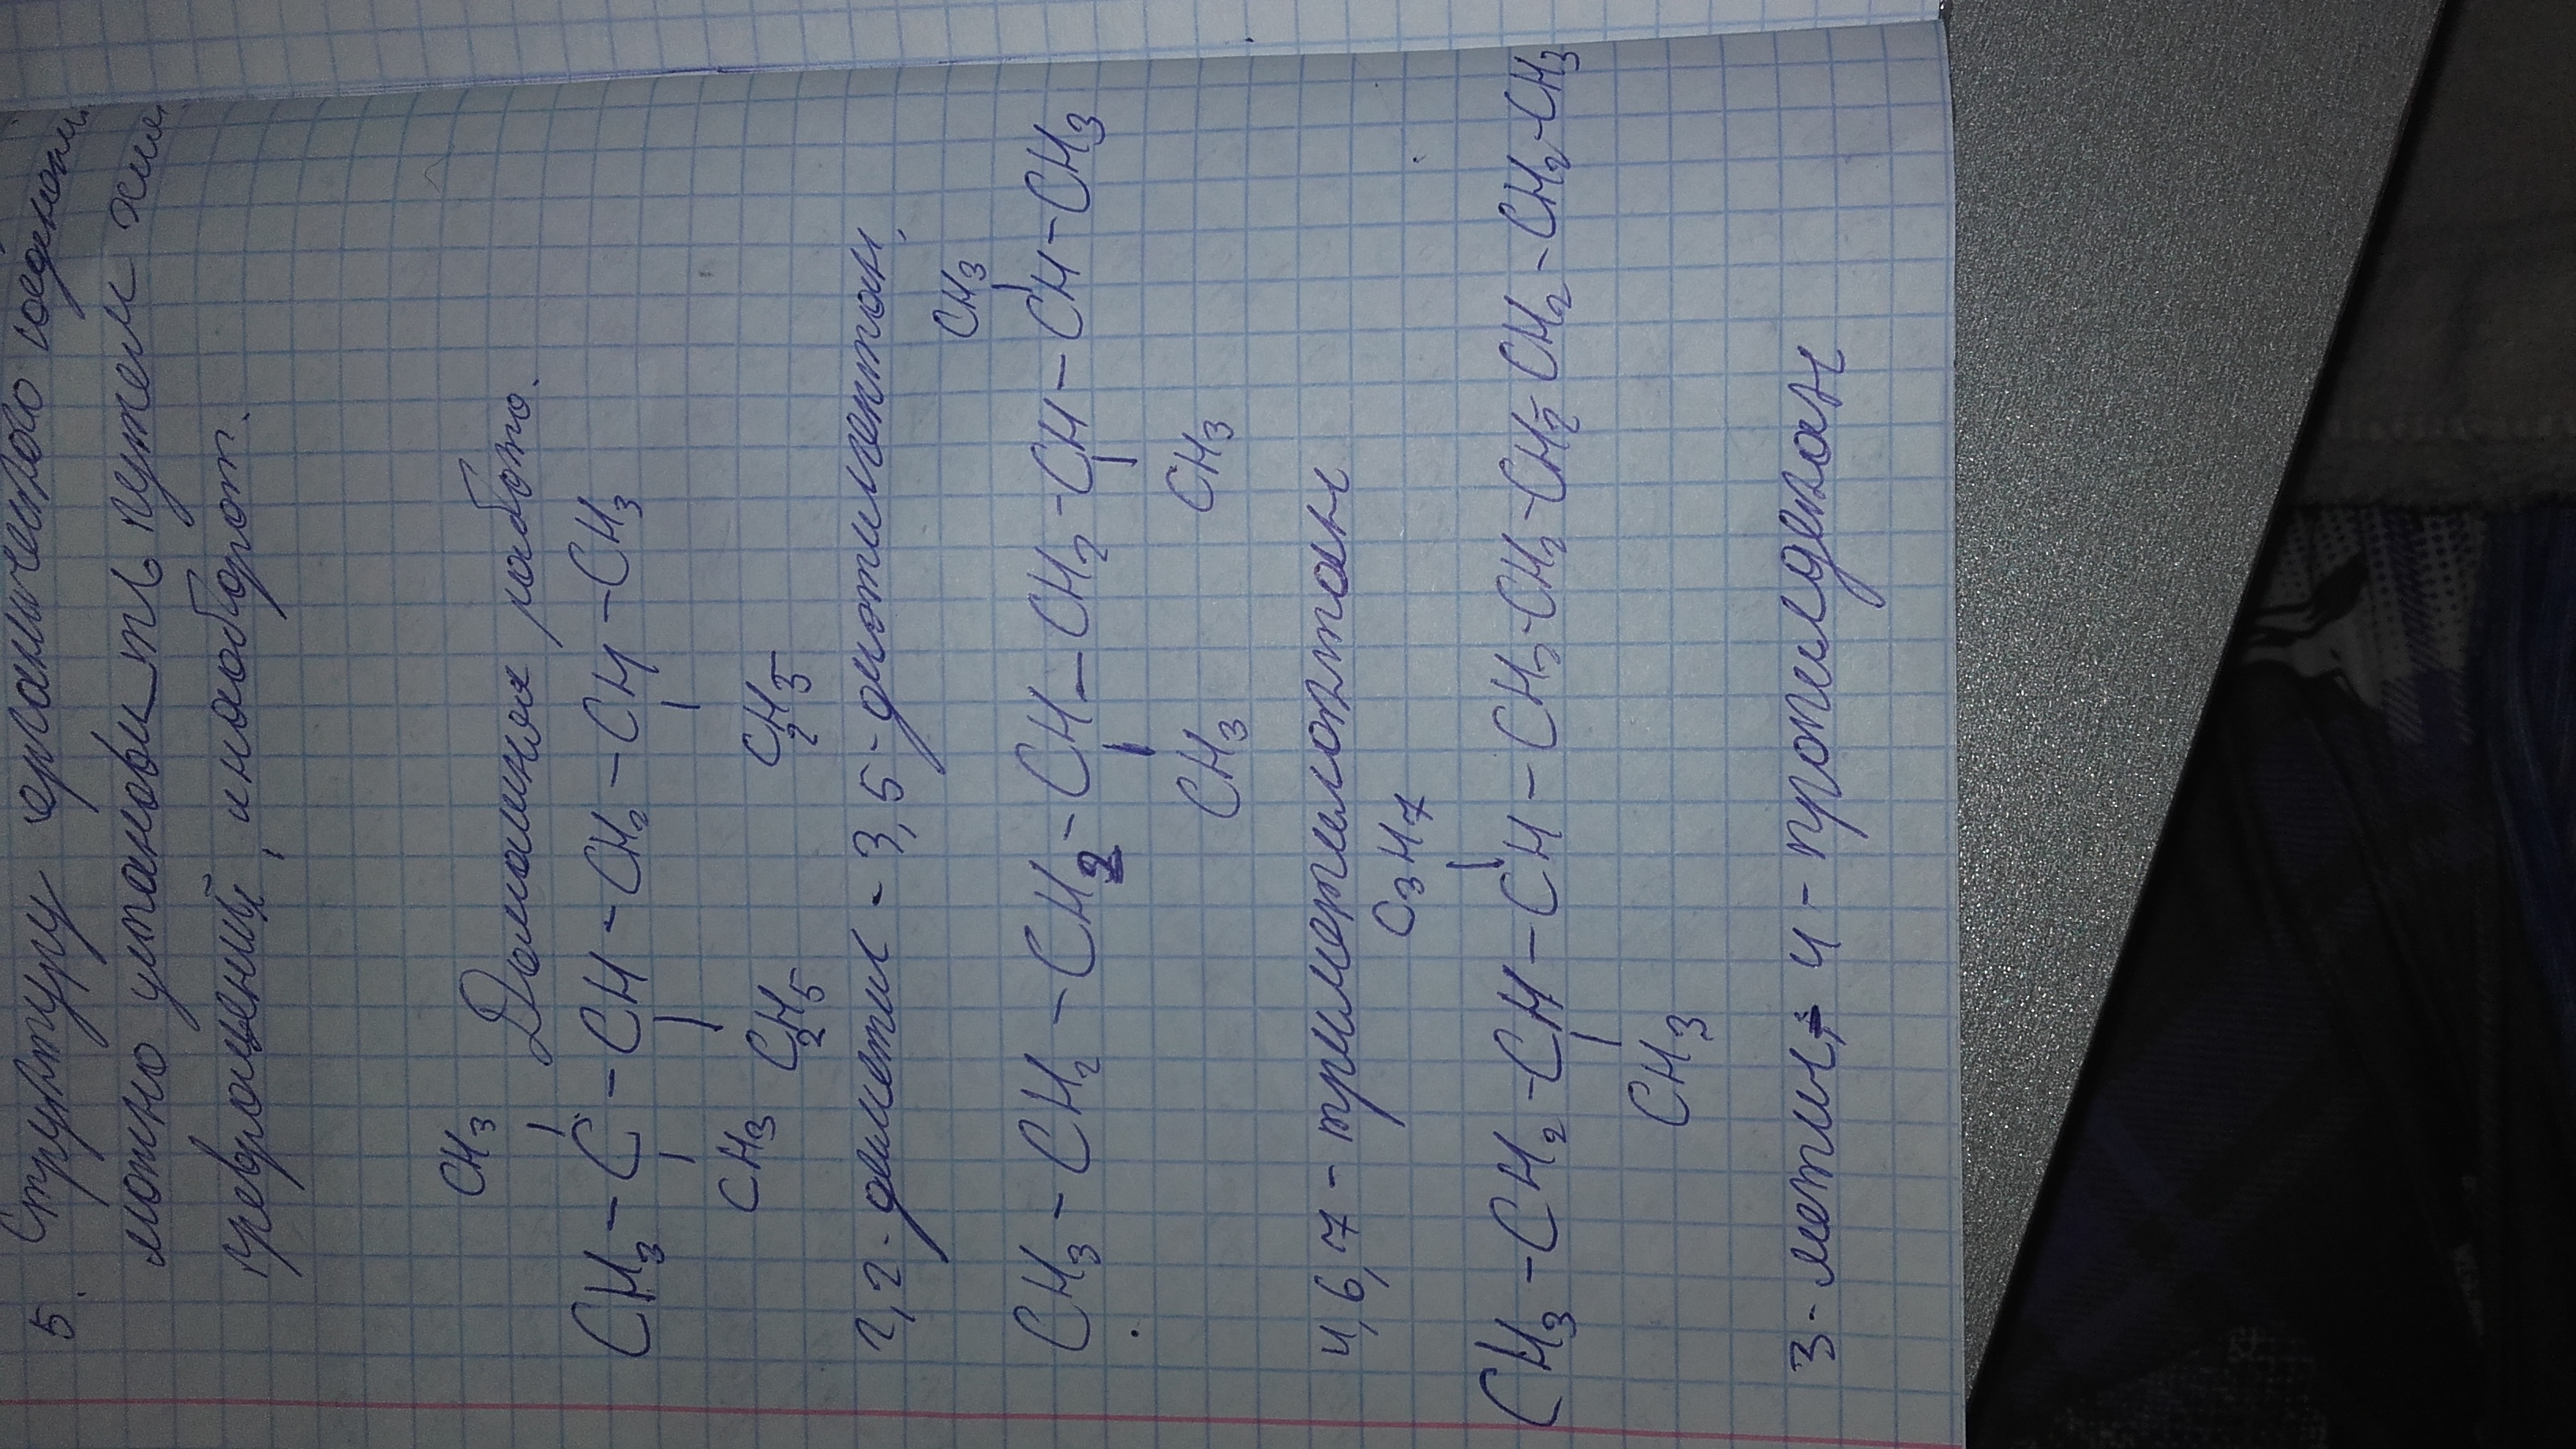 5. Структуру органического соединени
можно установить путем хим.
превращений, и наоборот.
Домашняя работа.
CH3
CH3 - C - CH - CH2 - CH - CH3
CH3 C2H5 C2H5
2,2-диметил - 3,5-диэтилгептан,
CH3
CH3 - CH2 - CH2 - CH - CH2 - CH - CH - CH3
CH3 CH3
4,6,7 - триметилоктан
C3H7
CH3 - CH2 - CH - CH - CH2 - CH2 - CH2 - CH2 - CH2 - CH3
CH3
3-метил, 4 - пропилдекан